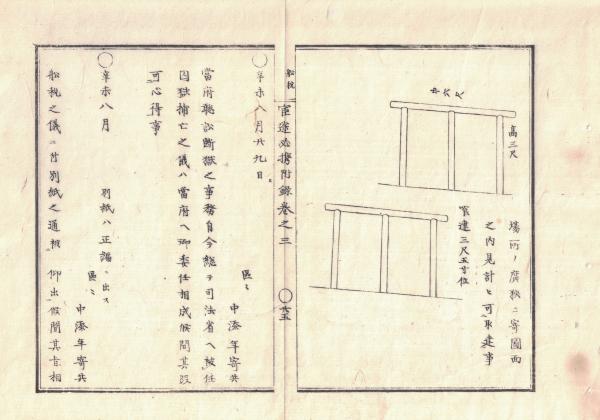 巾六尺
高三尺
場所ノ廣狹ニ寄圖面
之内見計ヒ可取建事
間違三尺五寸位
船税
官途必携附録卷之三
○辛未八月廿九日
當府聴訟断獄之事務自今總テ司法省ヘ被任
囚獄捕亡之儀ハ當府ヘ御委任相成候間其段
可心得事
區々
中添年寄共
○辛未八月
別紙ハ正編ニ出ス
區々
中添年寄共
船税之儀ニ付別紙之通被仰出候間其旨相